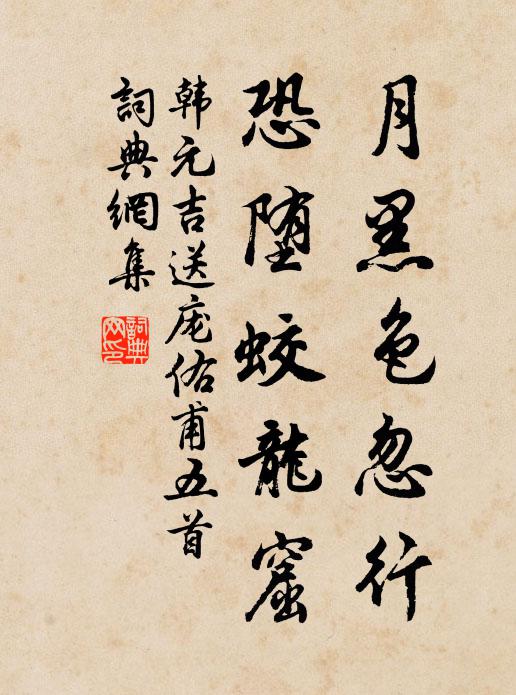 月黑色忽行
恐堕蛟龍窟
韩元吉送庞佑甫五首
詞典網集
詞典网印